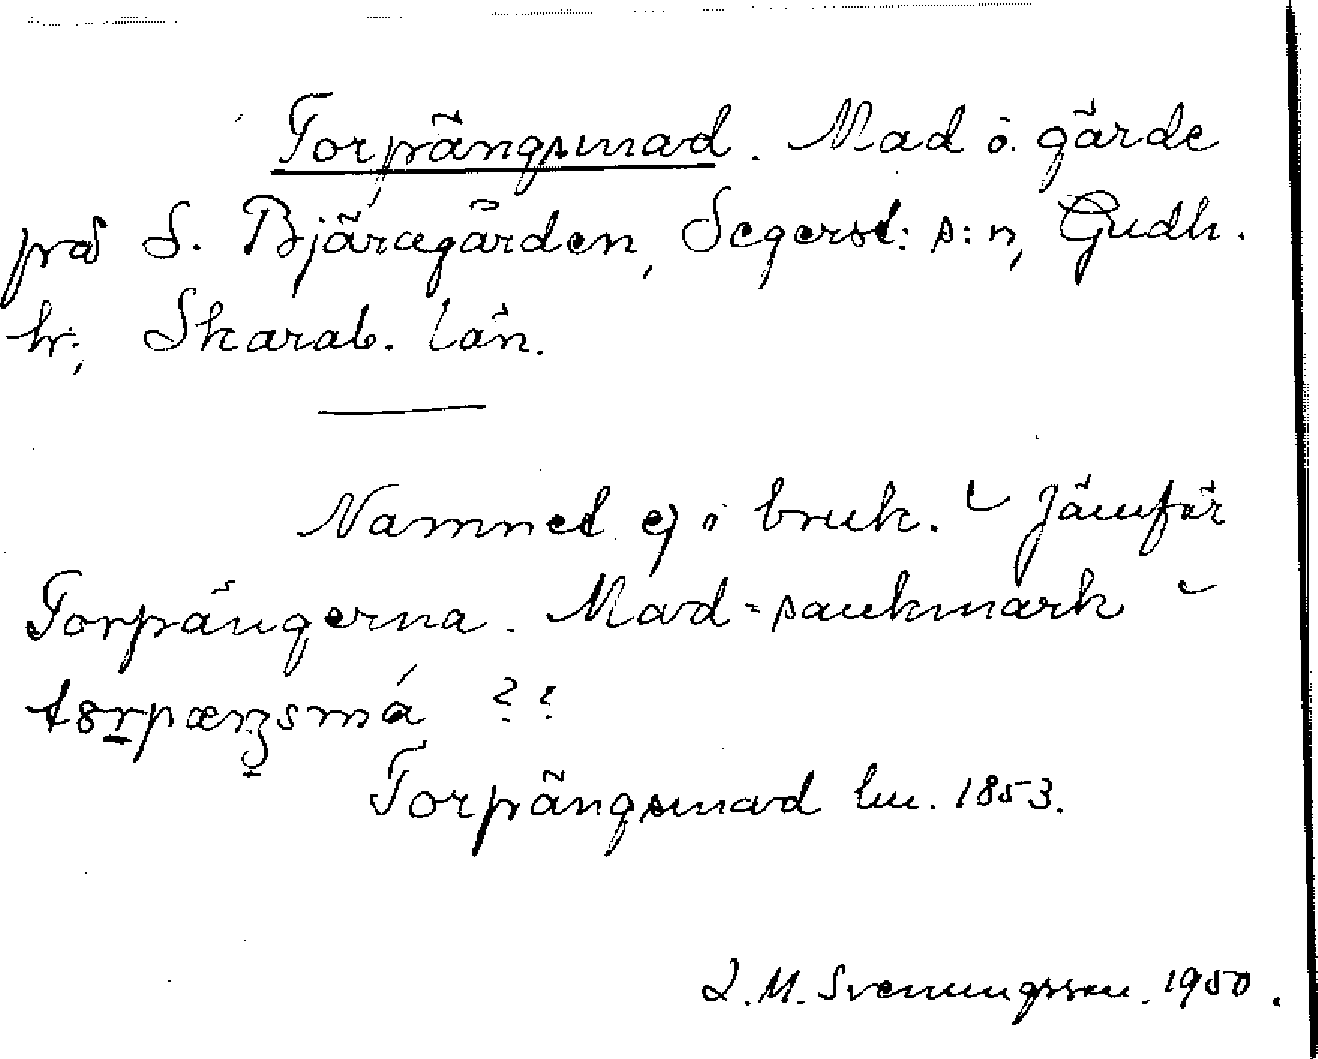 Torpängsmad. Mad o. gärde
på S. Bjäregården, Segerst: s: n, Gudh.
hr., Skarab. län.
Namnet ej i bruk. Jämför
Torpängerna. Mad = sankmark
Torpängsmad lm. 1853.
L. M. Svenungsson. 1950.